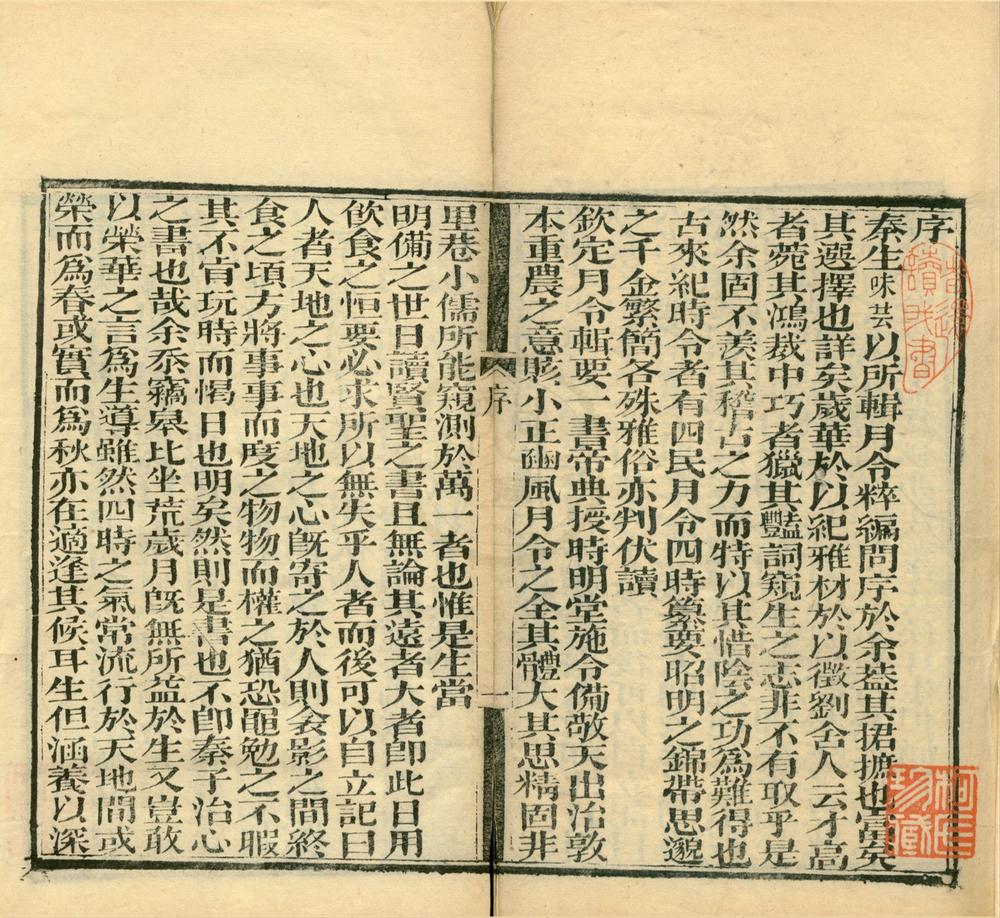 序
秦生味芸以所輯月令粹編問序於余葢其捃摭也富矣
其選擇也詳矣歲華於以紀雅材於以徵劉舍人云才高
者菀其鴻裁中巧者獵其豔詞窺生之志非不有取乎是
然余固不羨其稽古之力而特以其惜陰之功為難得也
古來紀時令者有四民月令四時纂要昭明之錦帶思邈
之千金繁簡各殊雅俗亦判伏讀
欽定月令輯要一書帝典授時明堂施令備敬天出治敦
本重農之意賅小正豳風月令之全其體大其思精固非
序
一
里巷小儒所能窺測於萬一者也惟是生當
明備之世日讀賢聖之書且無論其遠者大者卽此日用
飲食之恒要必求所以無失乎人者而後可以自立記曰
人者天地之心也天地之心旣寄之於人則衾影之間終
食之頃方將事事而度之物物而權之猶恐黽勉之不暇
其不肎玩時而愒日也明矣然則是書也不卽秦子治心
之書也哉余忝竊皋比坐荒歲月旣無所益於生又豈敢
以榮華之言為生導雖然四時之氣常流行於天地間或
榮而為春或實而為秋亦在適逢其候耳生但涵養以深
柯氏
珍藏